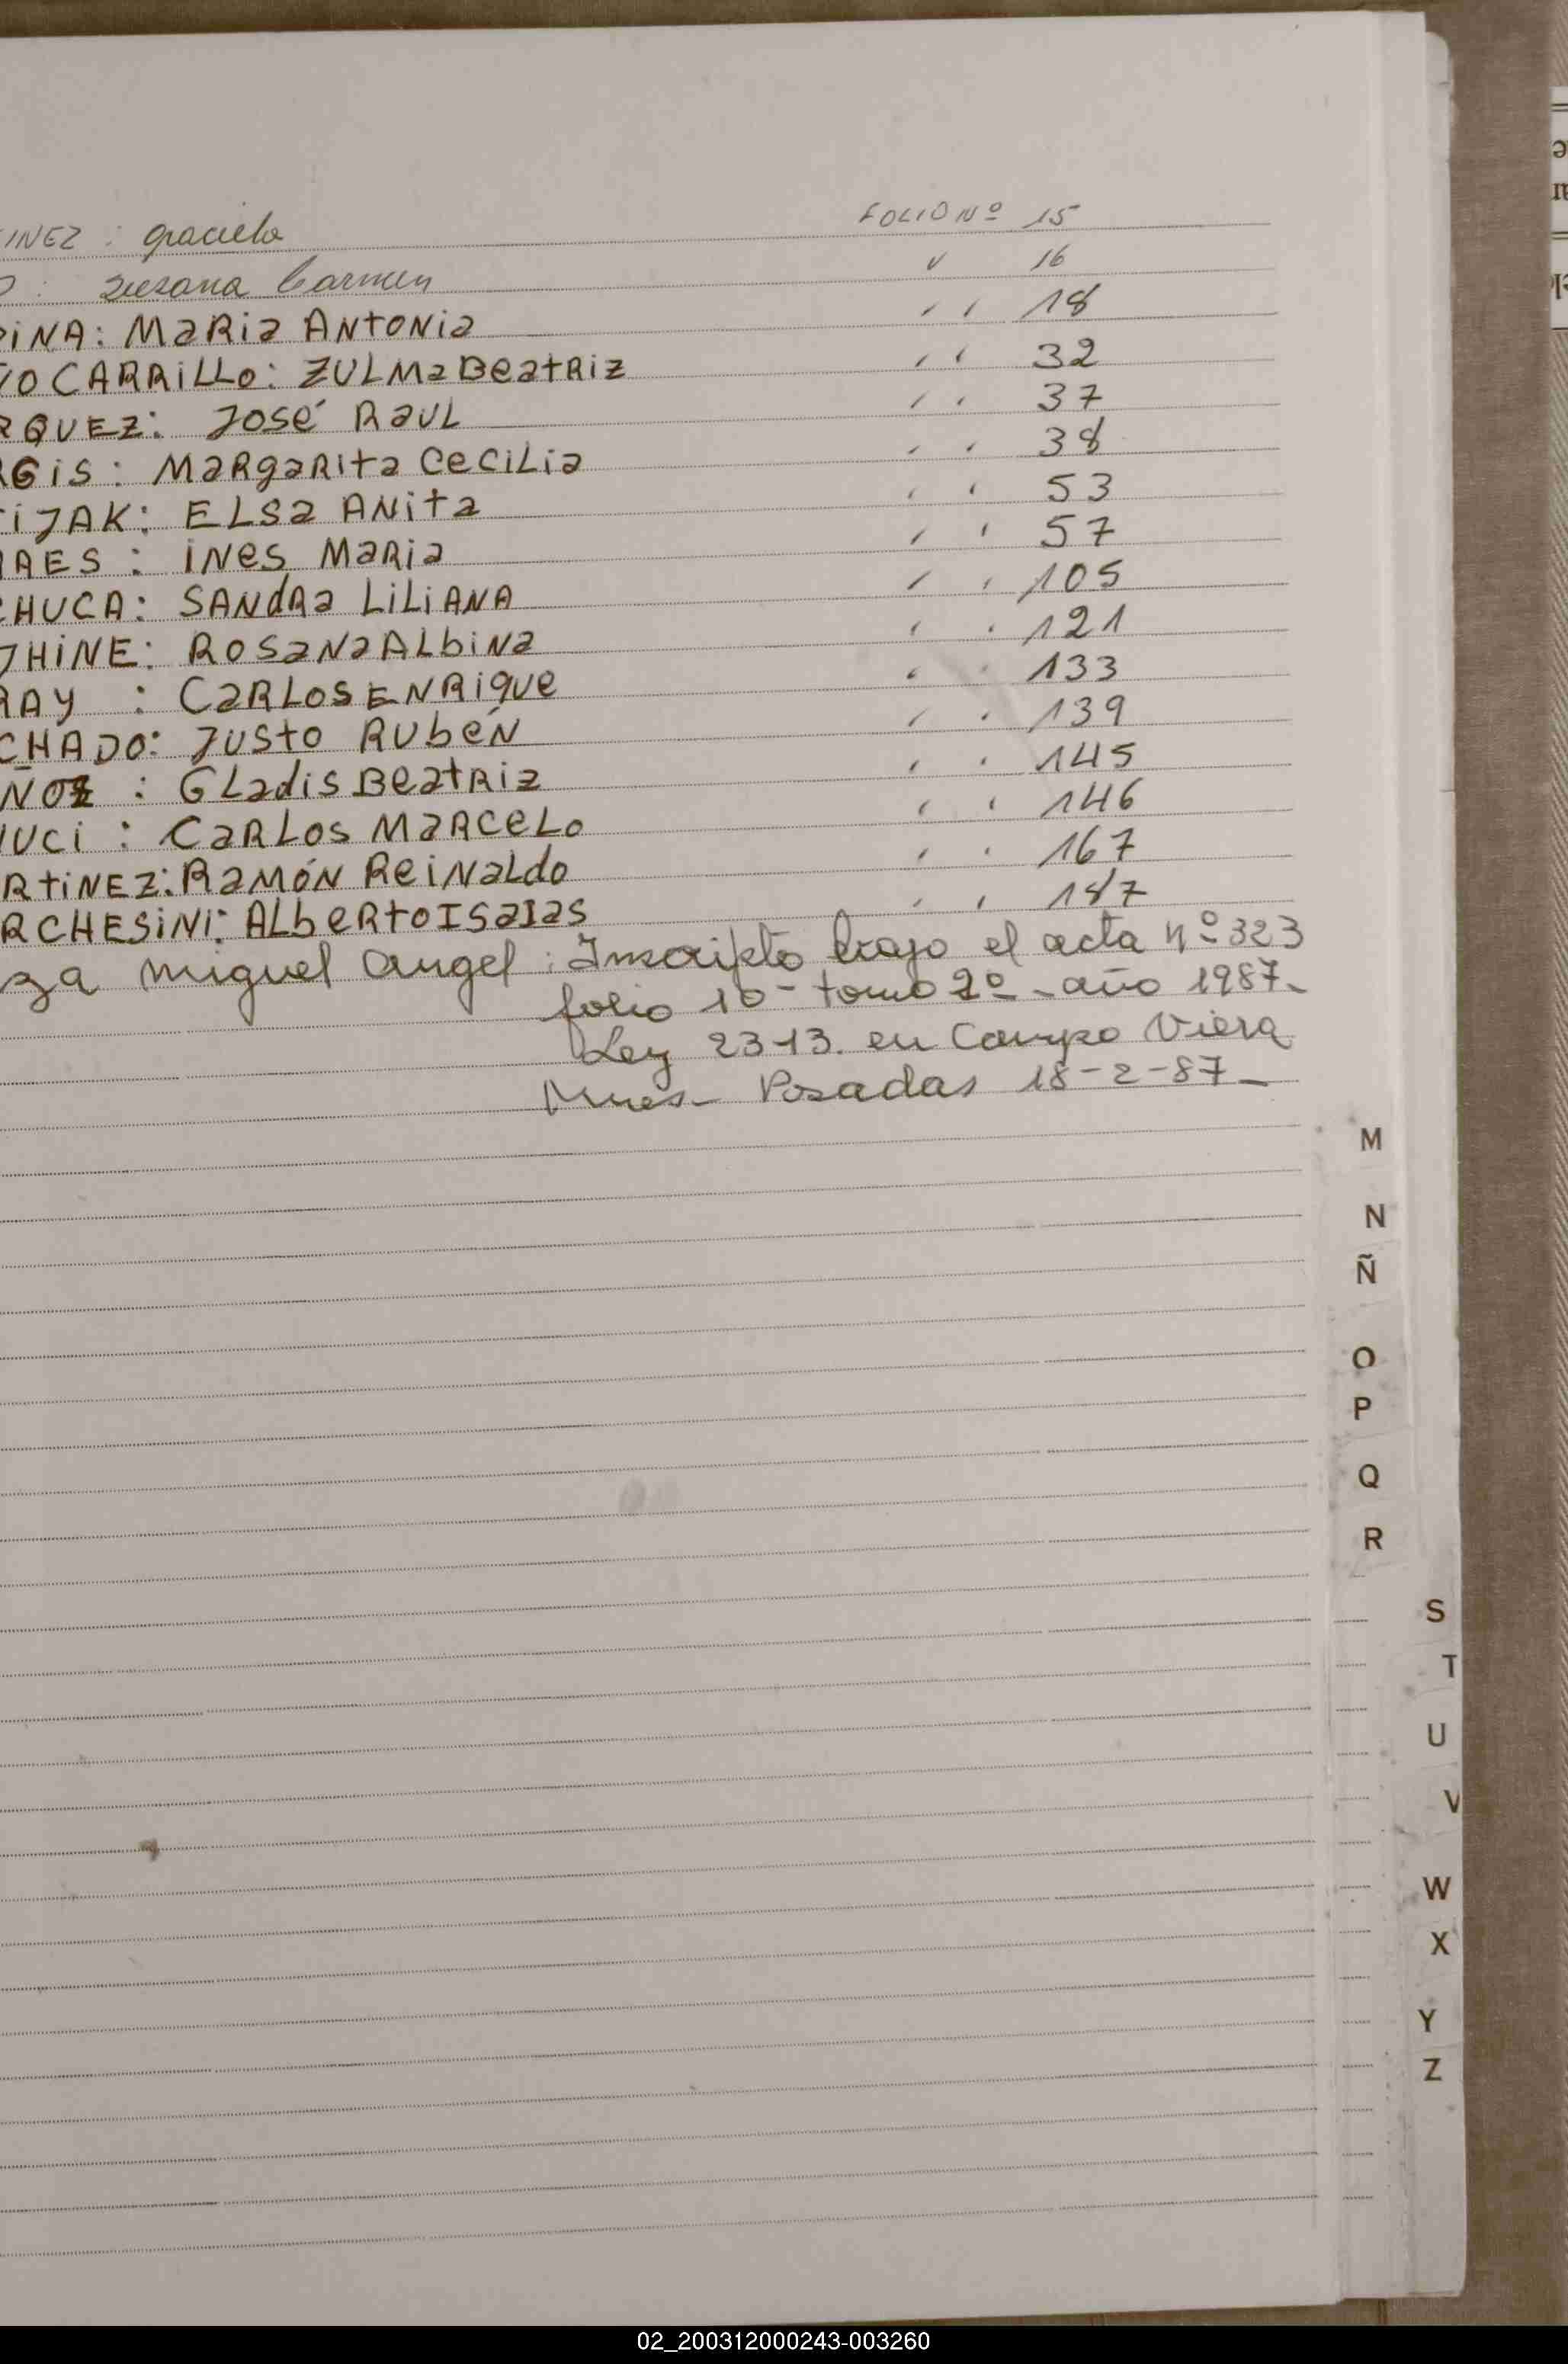 INEZ : graciela FOLIO Nº 15
O : Susana Carmen " 16
INA: MARIA ANTONIA " " 18
VO CARRILLO: ZULMA BEATRIZ " " 32
RQUEZ: JOSÉ RAUL " " 37
RGIS: MARGARITA CECILIA " " 38
IJAK: ELSA ANITA " " 53
RAES : INES MARIA " " 57
CHUCA: SANDRA LILIANA " " 105
JHINE: ROSANA ALBINA " " 121
RAY : CARLOS ENRIQUE " " 133
CHADO: JUSTO RUBÉN " " 139
ÑOZ : GLADIS BEATRIZ " " 145
UCI : CARLOS MARCELO " " 146
RTINEZ: RAMÓN REINALDO " " 167
RCHESINI: ALBERTO ISAIAS " " 187
za Miguel Angel : Inscripto bajo el acta nº 323
folio 10 - tomo 2º - año 1987 -
Ley 23-13. en Campo Viera
Mnes - Posadas 18-2-87 -
M
N
Ñ
O
P
Q
R
S
T
U
V
W
X
Y
Z
02_200312000243-003260